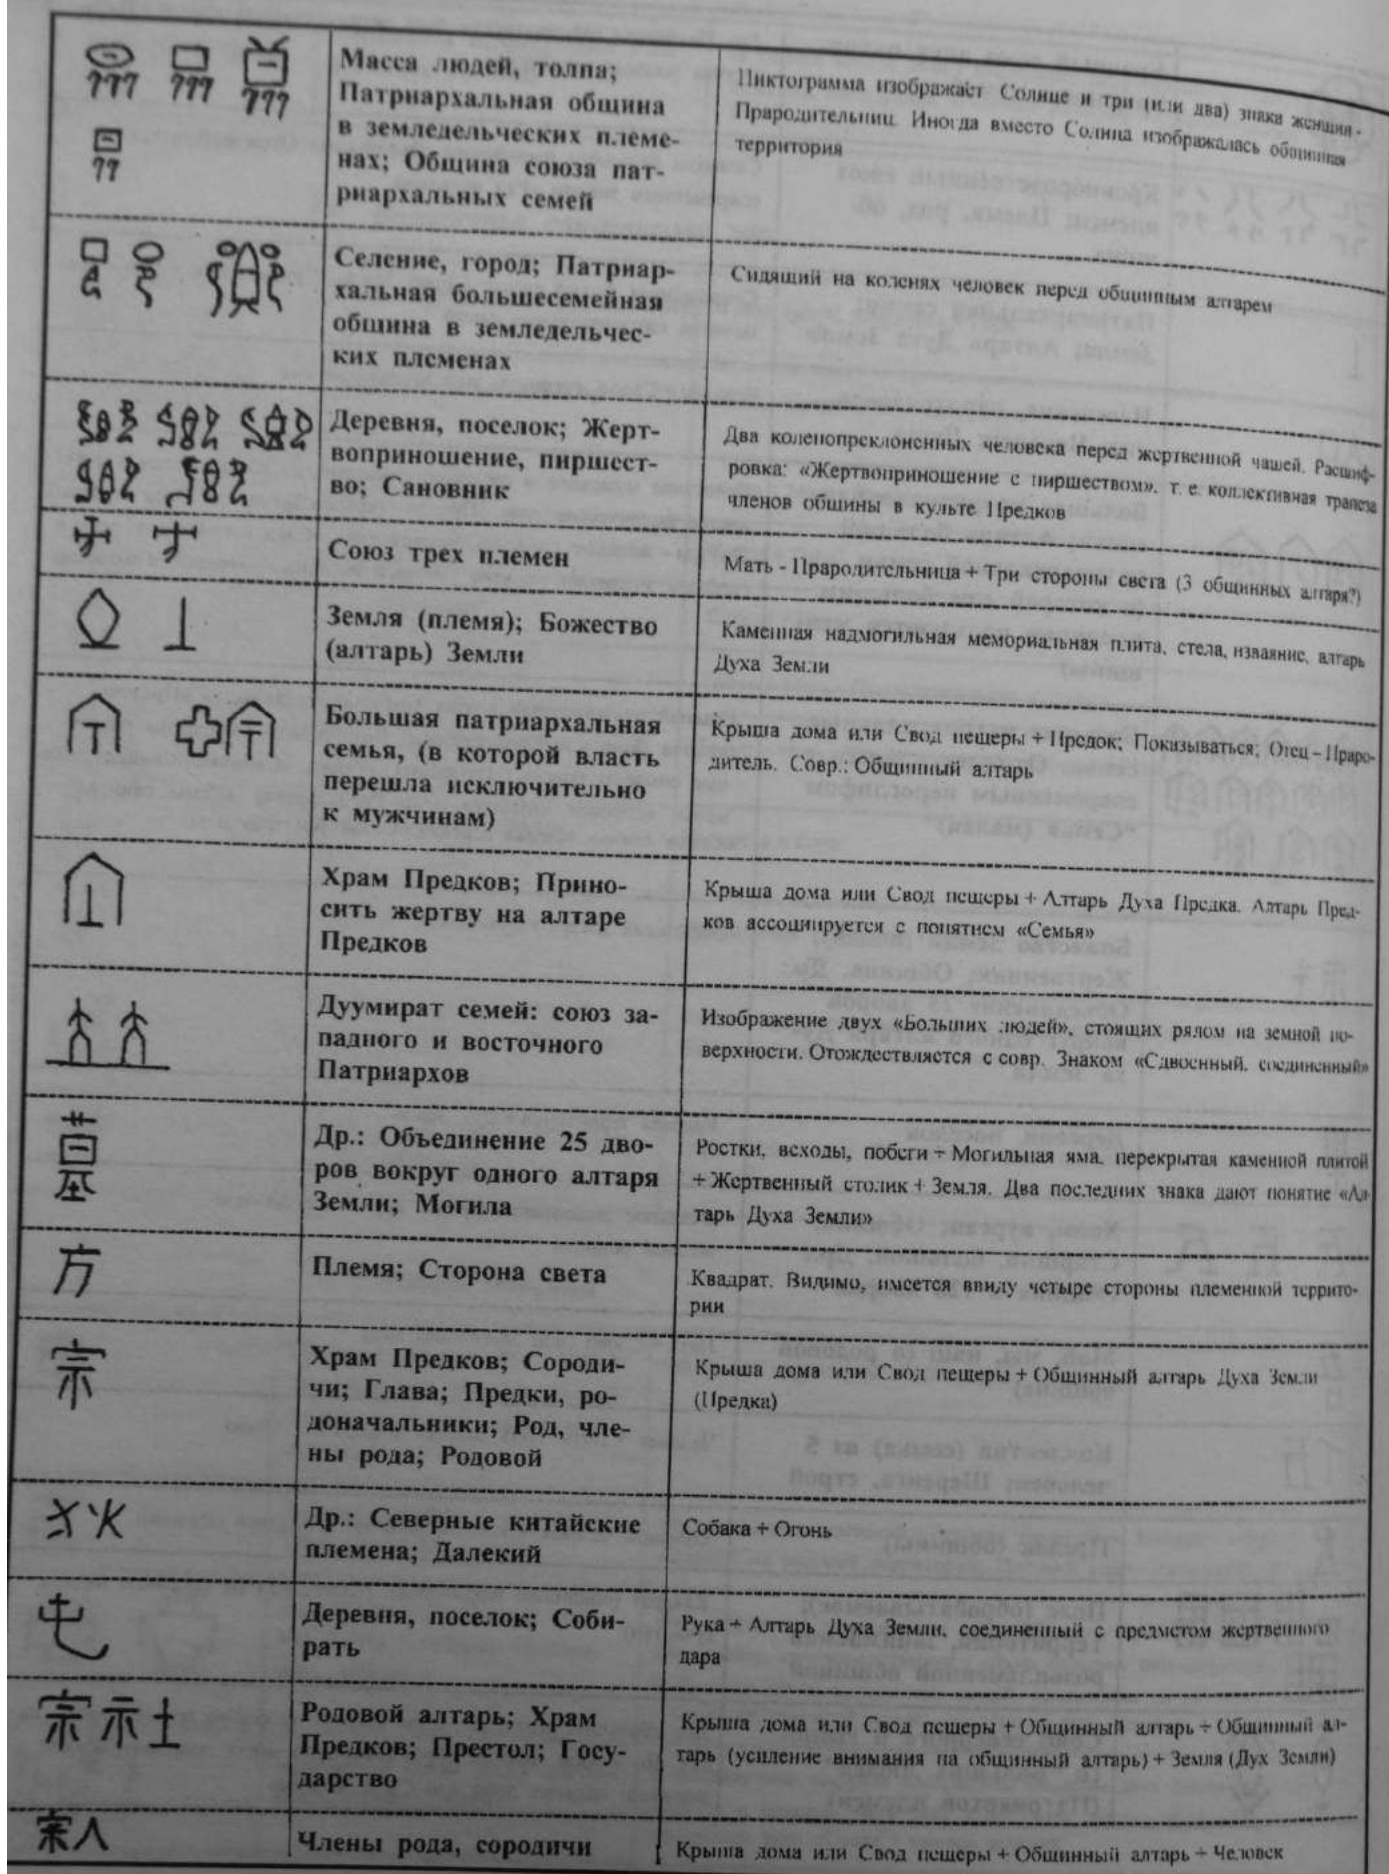 Масса людей, толпа;
Патриархальная община
в земледельческих племе-
нах; Община союза пат-
риархальных семей
Пиктограмма изображает Солнце и три (или два) знака женщин -
Прародительниц. Иногда вместо Солнца изображалась общинная
территория
Селение, город; Патриар-
хальная большесемейная
община в земледельчес-
ких племенах
Сидящий на коленях человек перед общинным алтарем
Деревня, поселок; Жерт-
воприношение, пиршест-
во; Сановник
Два коленопреклоненных человека перед жертвенной чашей. Расшиф-
ровка: «Жертвоприношение с пиршеством», т. е. коллективная трапеза
членов общины в культе Предков
Союз трех племен
Мать - Прародительница + Три стороны света (3 общинных алтаря?)
Земля (племя); Божество
(алтарь) Земли
Каменная надмогильная мемориальная плита, стела, изваяние, алтарь
Духа Земли
Большая патриархальная
семья, (в которой власть
перешла исключительно
к мужчинам)
Крыша дома или Свод пещеры + Предок; Показываться; Отец - Праро-
дитель. Совр.: Общинный алтарь
Храм Предков; Прино-
сить жертву на алтаре
Предков
Крыша дома или Свод пещеры + Алтарь Духа Предка. Алтарь Пред-
ков ассоциируется с понятием «Семья»
Дуумират семей: союз за-
падного и восточного
Патриархов
Изображение двух «Больших людей», стоящих рядом на земной по-
верхности. Отождествляется с совр. Знаком «Сдвоенный, соединенный»
墓
Др.: Объединение 25 дво-
ров вокруг одного алтаря
Земли; Могила
Ростки, всходы, побеги + Могильная яма, перекрытая каменной плитой
+ Жертвенный столик + Земля. Два последних знака дают понятие «Ал-
тарь Духа Земли»
方
Племя; Сторона света
Квадрат. Видимо, имеется ввиду четыре стороны племенной террито-
рии
宗
Храм Предков; Сороди-
чи; Глава; Предки, ро-
доначальники; Род, чле-
ны рода; Родовой
Крыша дома или Свод пещеры + Общинный алтарь Духа Земли
(Предка)
狄
Др.: Северные китайские
племена; Далекий
Собака + Огонь
屯
Деревня, поселок; Соби-
рать
Рука + Алтарь Духа Земли, соединенный с предметом жертвенного
дара
宗示土
Родовой алтарь; Храм
Предков; Престол; Госу-
дарство
Крыша дома или Свод пещеры + Общинный алтарь + Общинный ал-
тарь (усиление внимания на общинный алтарь) + Земля (Дух Земли)
宗人
Члены рода, сородичи
Крыша дома или Свод пещеры + Общинный алтарь + Человек